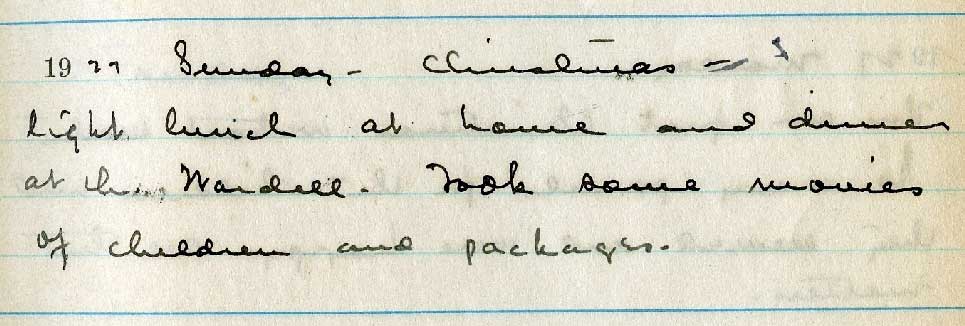 1927 Sunday - Christmas -
light lunch at home and dinner
at the Wardell. Took some movies
of children and packages.